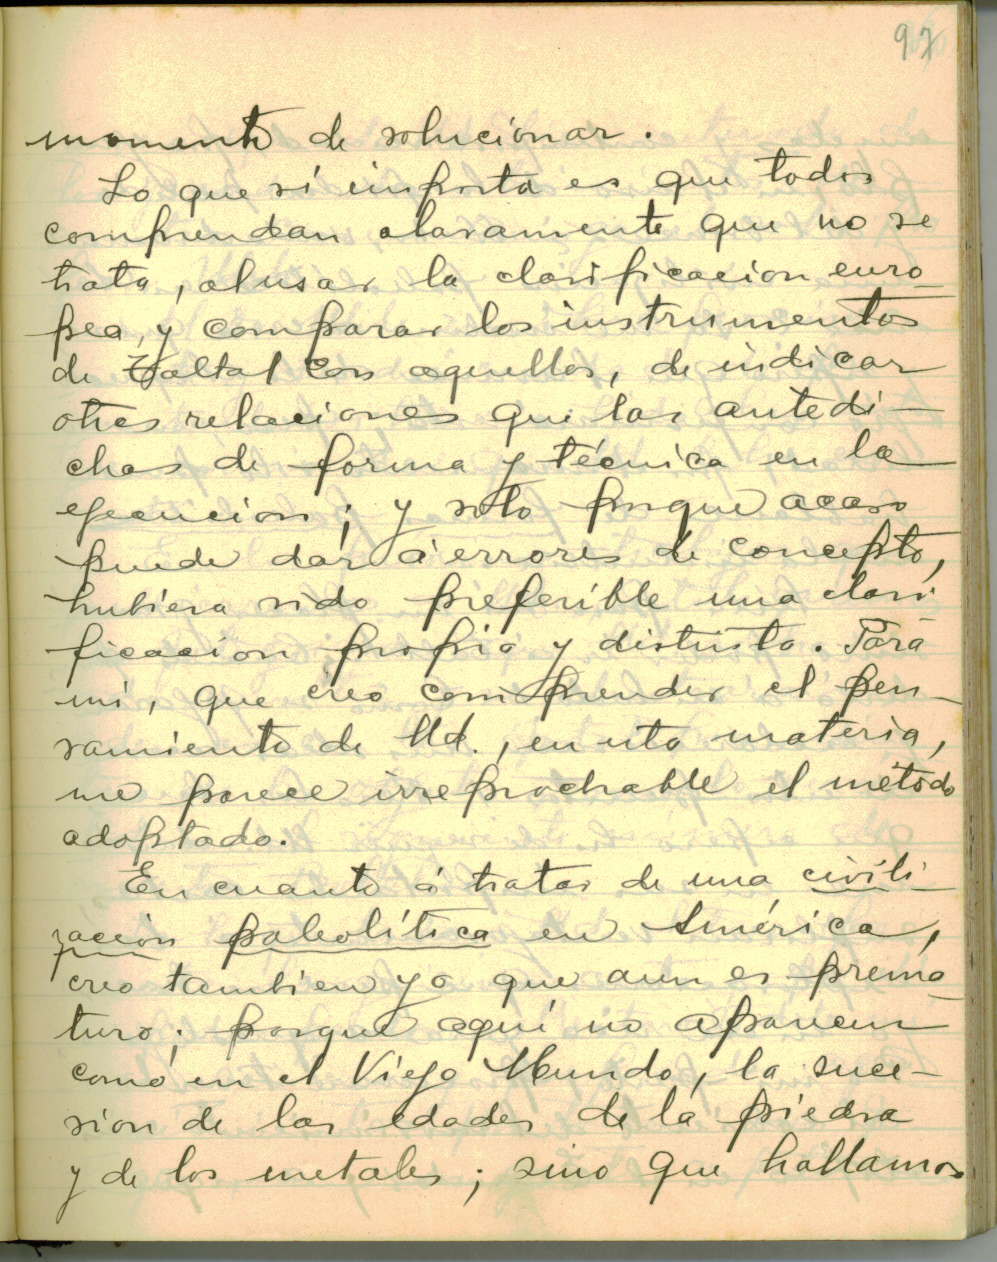 97
momento de solucionar.
Lo que sí importa es que todos
comprendan claramente que no se
trata, al usar la clasificacion euro-
pea, y comparar los instrumentos
de Taltal con aquellos, de indicar
otras relaciones que las antedi-
chas de forma y técnica en la
ejecucion; y solo porque acaso
puede dar á errores de concepto,
hubiera sido preferible una clasi-
ficacion propia y distinta. Para
mi, que creo comprender el pen-
samiento de Ud., en esta materia,
me parece irreprochable el método
adoptado.
En cuanto á tratar de una civili-
zación paleolítica en América,
creo tambien yo que aun es prema-
turo; porque aquí no aparecen
como en el Viejo Mundo, la suce-
sion de las edades de la piedra
y de los metales; sino que hallamos